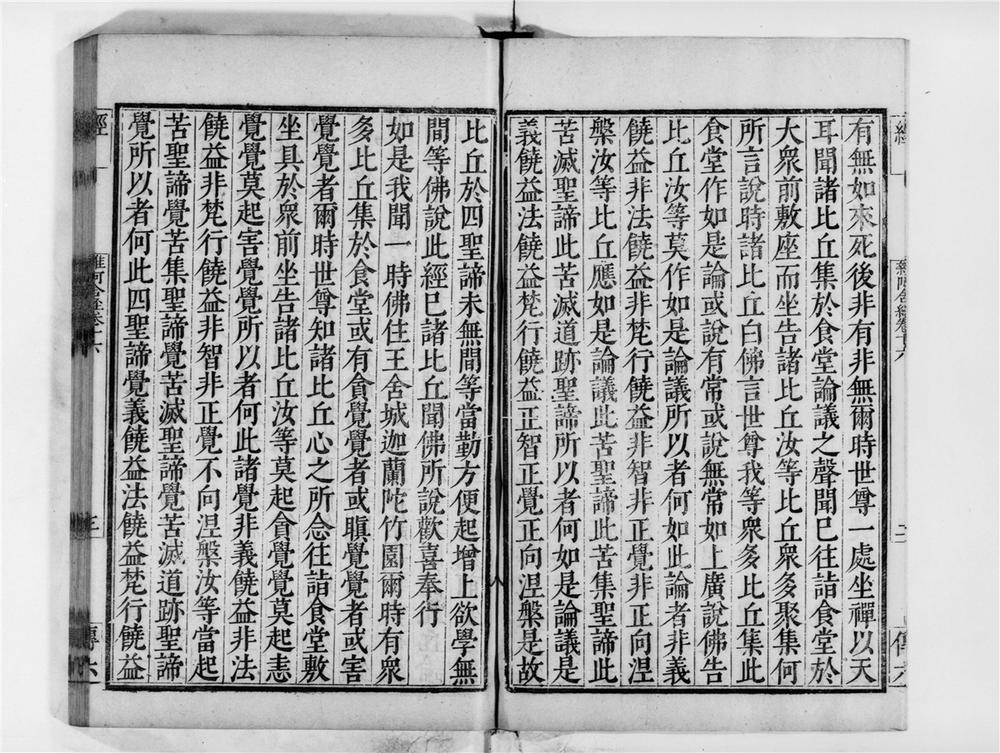 有無如來死後非有非無爾時世尊一處坐禪以天
耳聞諸比丘集於食堂論議之聲聞已往詣食堂於
大衆前敷座而坐告諸比丘汝等比丘衆多聚集何
所言說時諸比丘白佛言世尊我等衆多比丘集此
食堂作如是論或說有常或說無常如上廣說佛告
比丘汝等莫作如是論議所以者何如此論者非義
饒益非法饒益非梵行饒益非智非正覺非正向涅
槃汝等比丘應如是論議此苦聖諦此苦集聖諦此
苦滅聖諦此苦滅道跡聖諦所以者何如是論議是
義饒益法饒益梵行饒益正智正覺正向涅槃是故
比丘於四聖諦未無間等當勤方便起增上欲學無
間等佛說此經已諸比丘聞佛所說歡喜奉行
如是我聞一時佛住王舍城迦蘭陀竹園爾時有衆
多比丘集於食堂或有貪覺覺者或瞋覺覺者或害
覺覺者爾時世尊知諸比丘心之所念往詣食堂敷
坐具於衆前坐告諸比丘汝等莫起貪覺覺莫起恚
覺覺莫起害覺覺所以者何此諸覺非義饒益非法
饒益非梵行饒益非智非正覺不向涅槃汝等當起
苦聖諦覺苦集聖諦覺苦滅聖諦覺苦滅道跡聖諦
覺所以者何此四聖諦覺義饒益法饒益梵行饒益
經
雜阿含經卷十六
三
傳六